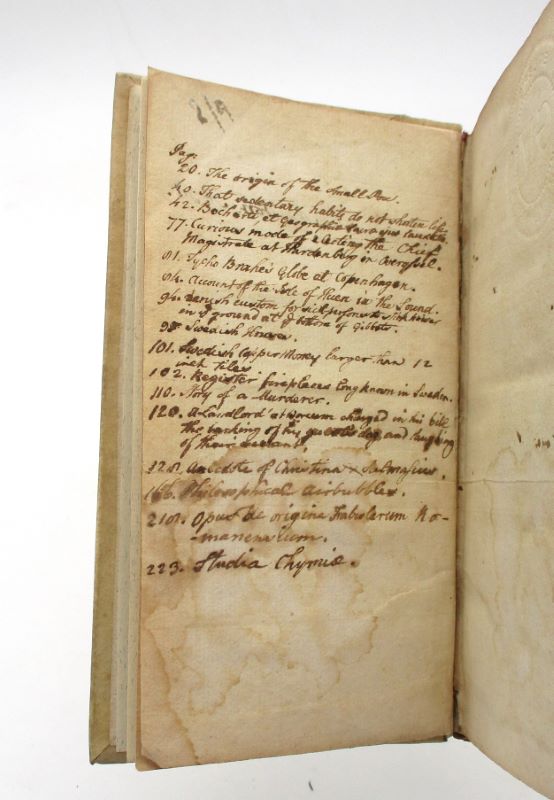 2/9
Pag:
20. The origin of the Small Pox.
40. That sedentary habits do not shorten life.
42. Bocharti Geographia Sacra
77. Curious mode of electing the Chief
Magistrate at Hardenburg in Overyssel.
81. Tycho Brahe's Globe at Copenhagen.
84. Account of the Isle of Huen in the Sound.
94. Danish custom for sick persons to
on ye ground at ye bottom of Gibbets.
98. Swedish Houses.
101. Swedish Copper Money larger than 12
inch tiles
102. Register fireplaces long known in Sweden.
110. Story of a Murderer.
120. A Landlord at charged in his bill
the barking of his guests dog and laughing
of their servant.
128. Anecdote of Christina & Salmasius.
166. Philosophical airbubbles.
210. Opus de origine Fabularum Ro-
-manensium.
223. Studia Chymiæ.